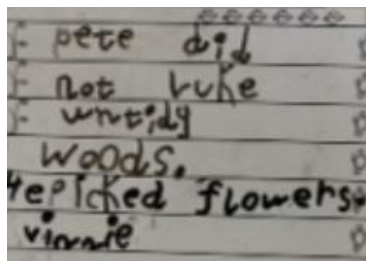 pete did
not luke
untidy
woods.
Hepicked flowers.
vinnie